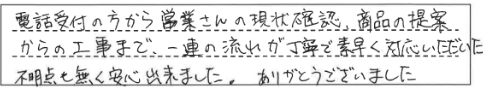 電話受付の方から営業さんの現状確認、商品の提案
からの工事まで、一連の流れが丁寧で素早く対応いただいた
不明点も無く安心出来ました。ありがとうございました